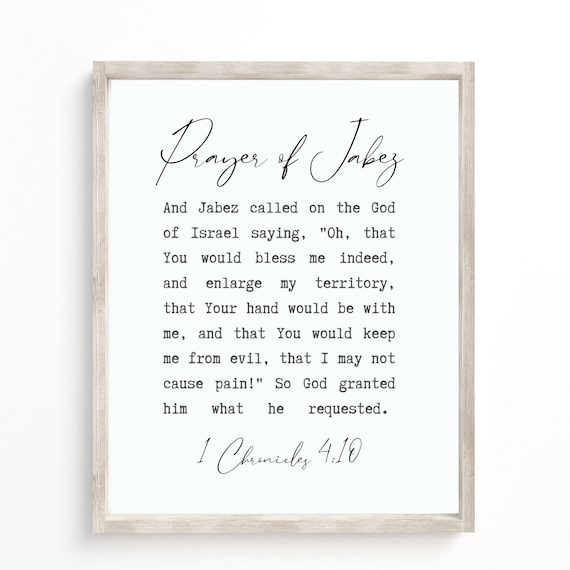 Prayer of Jabez
And Jabez called on the God
of Israel saying, "Oh, that
You would bless me indeed,
and enlarge my territory,
that Your hand would be with
me, and that You would keep
me from evil, that I may not
cause pain!" So God granted
him what he requested.
1 Chronicles 4:10